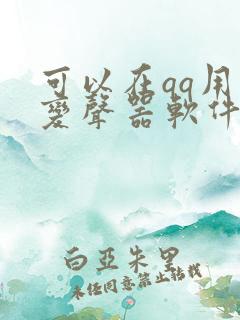 可以在qq用
變聲器軟件
白亞朱里
未经同意禁止转载